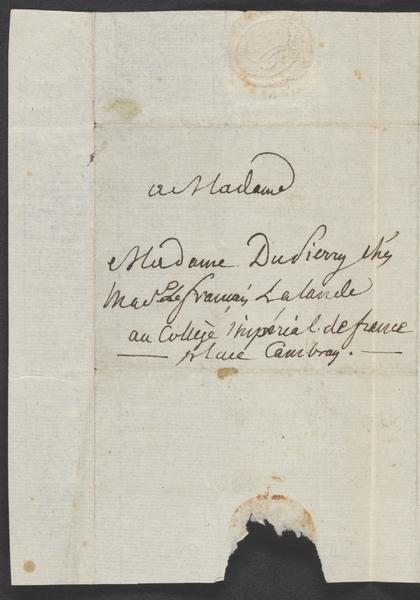 a Madame
Madame Dupierry chés
Mad.e Lefrançais Lalande
au Collège impérial de france
place Cambray.